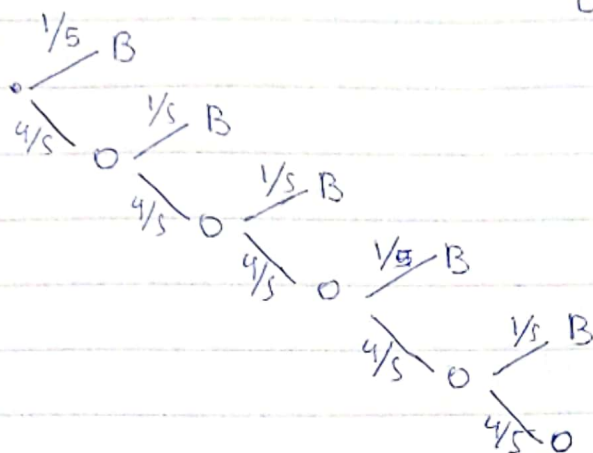 1/5 B
4/5 O 1/5 B
4/5 O 1/5 B
4/5 O 1/5 B
4/5 O 1/5 B
4/5 O